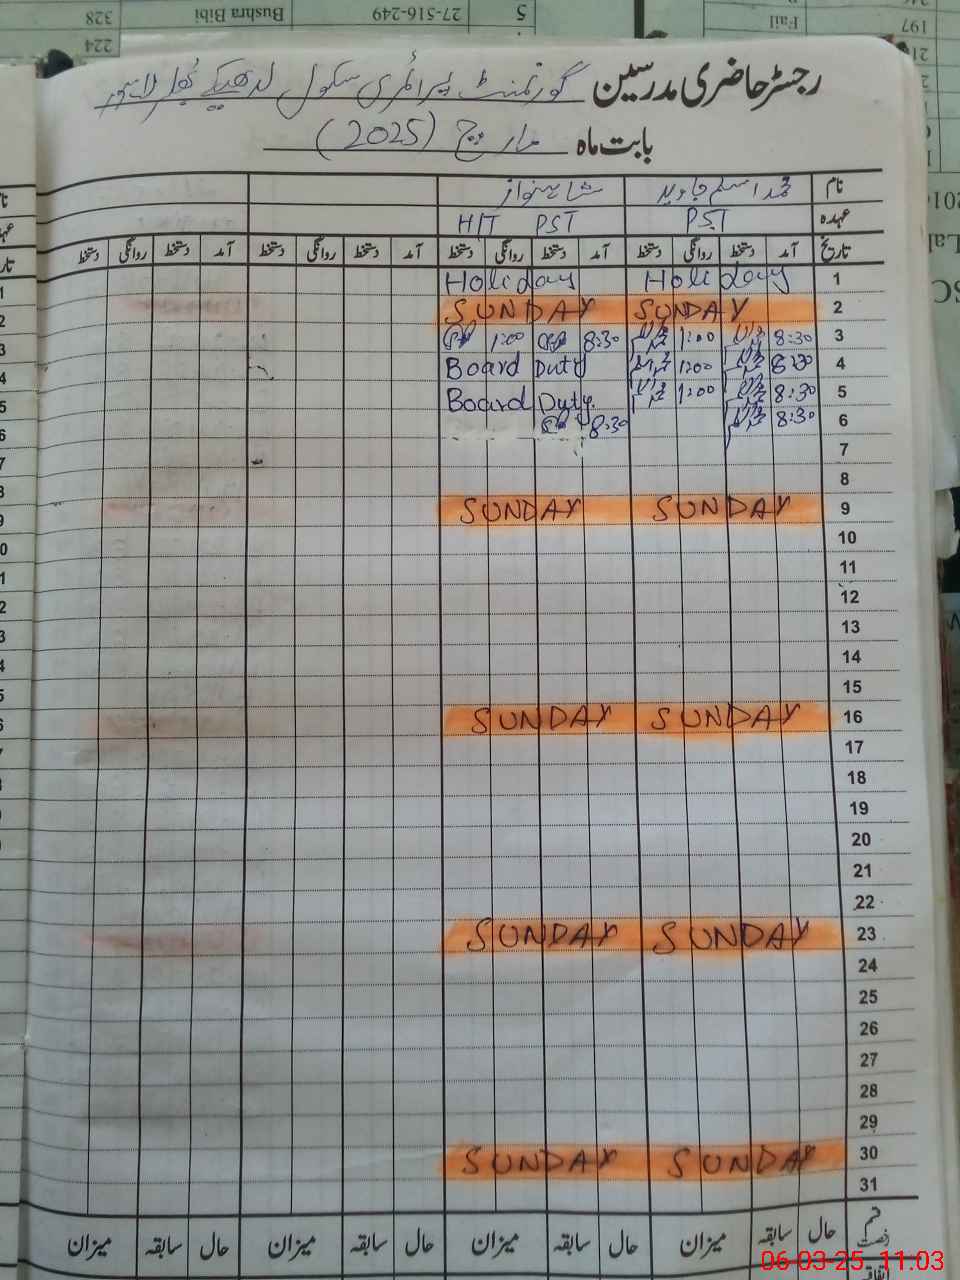 224
328 Bushra Bibi 27-516-249 5
Fail 197
رجسٹر حاضری مدرسین گورنمنٹ پرائمری سکول
بابت ماہ مارچ (2025)
نام محمد اسلم جاوید شاہنواز
عہدہ PST HIT PST
تاریخ آمد دستخط روانگی دستخط آمد دستخط روانگی دستخط آمد دستخط روانگی دستخط آمد دستخط روانگی دستخط
Holiday Holiday 1
SUNDAY SUNDAY 2
1:00 8:30 1:00 8:30 3
Board Duty 1:00 8:30 4
Board Duty 1:00 8:30 5
8:30 8:30 6
7
8
SUNDAY SUNDAY 9
10
11
12
13
14
15
SUNDAY SUNDAY 16
17
18
19
20
21
22
SUNDAY SUNDAY 23
24
25
26
27
28
29
SUNDAY SUNDAY 30
31
قسم رخصت حال سابقہ میزان حال سابقہ میزان حال سابقہ میزان حال سابقہ میزان
06-03-25 11:03